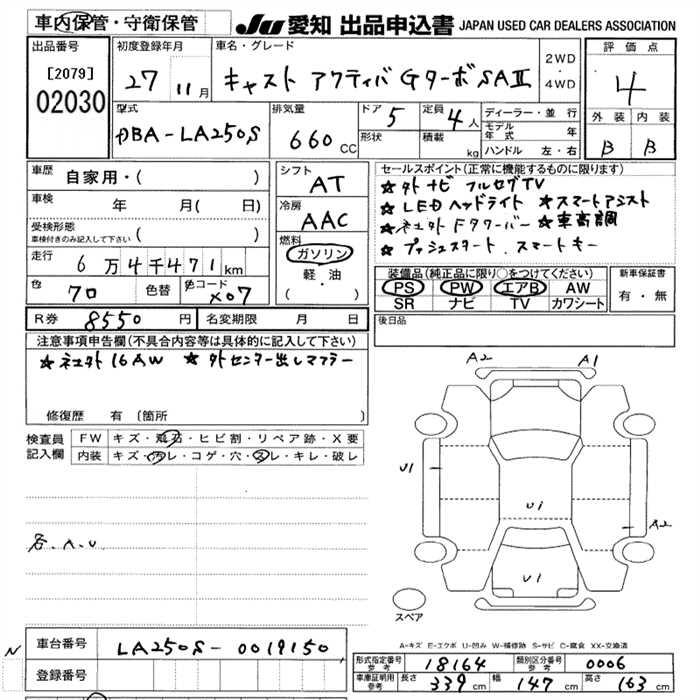 車内保管・守衛保管 JU 愛知 出品申込書 JAPAN USED CAR DEALERS ASSOCIATION
出品番号 初度登録年月 車名・グレード 評価点
[2079] 27 11月 キャスト アクティバ Gターボ SAⅡ 2WD・4WD 4
02030
型式 排気量 ドア 5 定員 4人 ディーラー・並行 外装 内装
DBA-LA250S 660cc 形状 積載 kg モデル年式 年 B B
ハンドル 左・右
車歴 自家用・( ) シフト AT セールスポイント(正常に機能するものに限ります)
車検 年 月( 日) 冷房 AAC ☆外ナビ フルセグTV
受検形態 車検付きのみ記入して下さい ( ) ☆LEDヘッドライト ☆スマートアシスト
走行 6万4千471km 燃料 ガソリン 軽・油 ( ) ☆車高調
☆プッシュスタート.スマートキー
色 色替 色コード X07 装備品(純正品に限り○をつけてください) 新車保証書
PS PW エアB AW 有・無
SR ナビ TV カワシート
R券 8550円 名変期限 月 日 後日品
注意事項申告欄(不具合内容等は具体的に記入して下さい)
☆ネエ外16AW ☆外センター出しマフラー
修復歴 有 (箇所 )
A2 A1
検査員記入欄 FW キズ・飛石・ヒビ割・リペア跡・X要
内装 キズ・汚レ・コゲ・穴・スレ・キレ・破レ
U1
U1
A2
各.A.U
U1
スペア
A-キズ E-エクボ U-凹み W-補修跡 S-サビ C-腐食 XX-交換済
N 車台番号 LA250S-0019150
登録番号
形式指定番号参考 18164 類別区分番号参考 0006
車庫証明用参考 長さ 339cm 幅 147cm 高さ 163cm